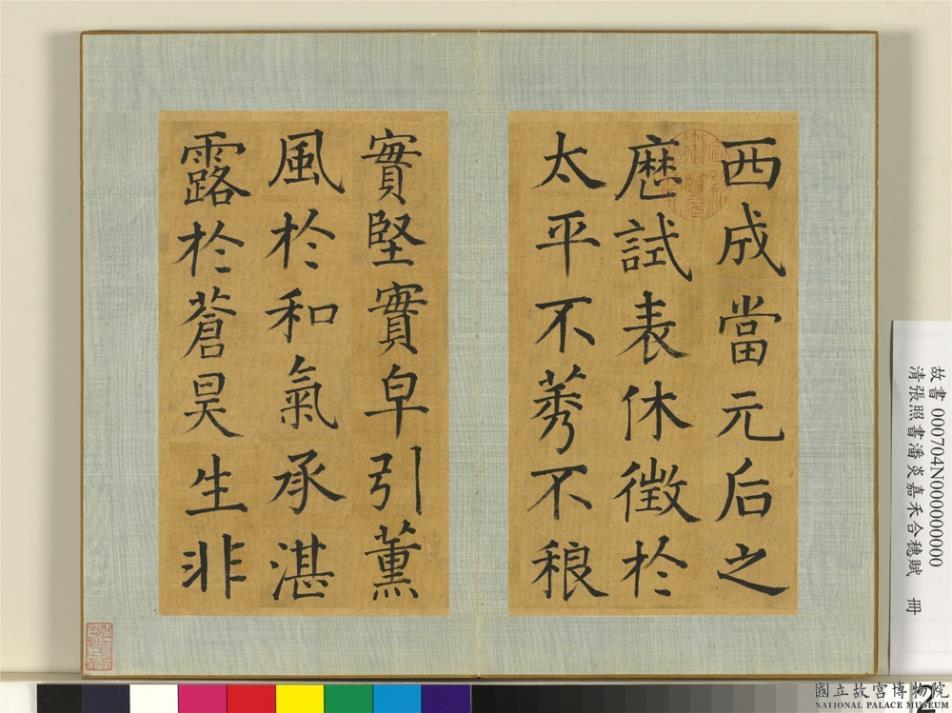 西成當元后之
歷試表休徵於
太平不莠不稂
實堅實皁引薰
風於和氣承湛
露於蒼昊生非
故書 000704N000000000
清張照書潘炎嘉禾合穗賦 冊
國立故宮博物院
NATIONAL PALACE MUSEUM
2